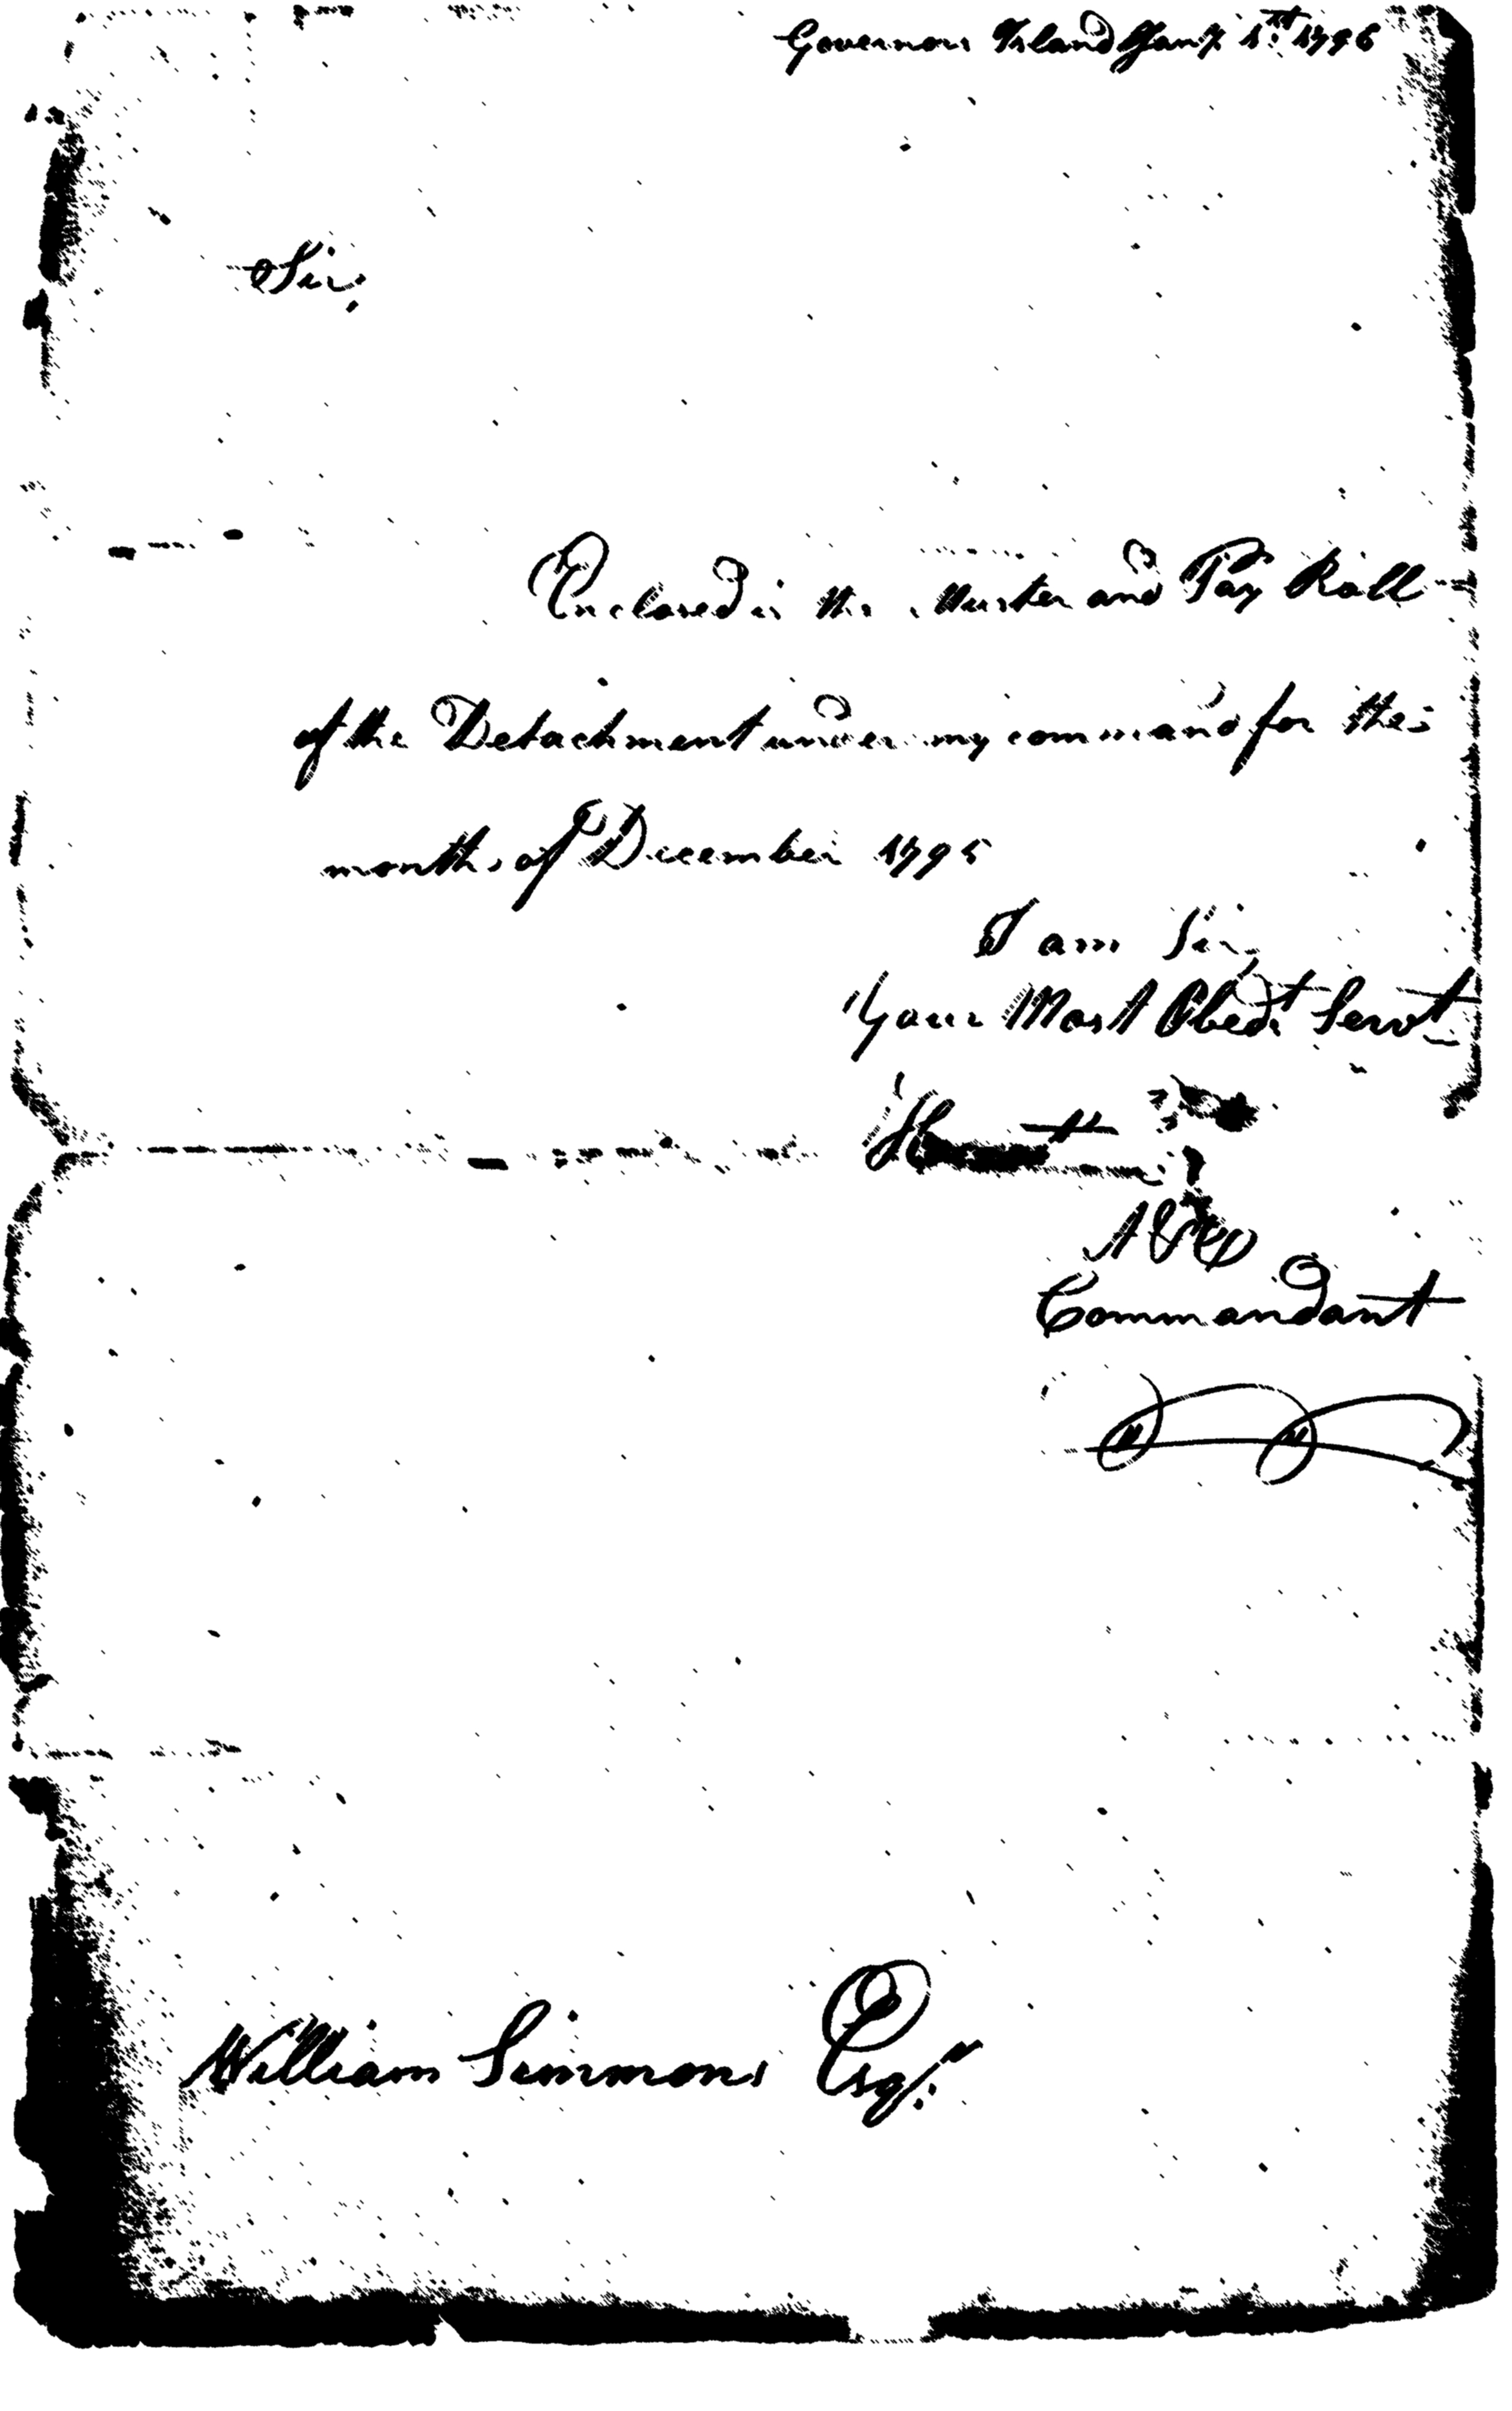 Governors Island Jany. 1st. 1796
Sir,
Enclosed is the Muster and Pay Roll
of the Detachment under my command for the
months of December 1795
I am Sir,
Your Most Obedt. Servt.
Commandant
William Simmons Esqr.